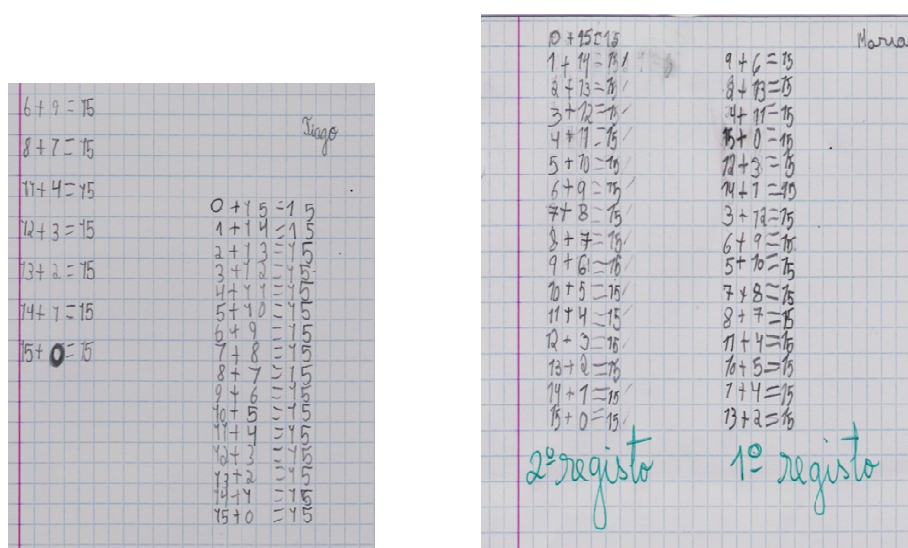 6 + 9 = 15
8 + 7 = 15
11 + 4 = 15
12 + 3 = 15
13 + 2 = 15
14 + 1 = 15
15 + 0 = 15
Tiago
0 + 15 = 15
1 + 14 = 15
2 + 13 = 15
3 + 12 = 15
4 + 11 = 15
5 + 10 = 15
6 + 9 = 15
7 + 8 = 15
8 + 7 = 15
9 + 6 = 15
10 + 5 = 15
11 + 4 = 15
12 + 3 = 15
13 + 2 = 15
14 + 1 = 15
15 + 0 = 15
Maria
0 + 15 = 15
1 + 14 = 15
2 + 13 = 15
3 + 12 = 15
4 + 11 = 15
5 + 10 = 15
6 + 9 = 15
7 + 8 = 15
8 + 7 = 15
9 + 6 = 15
10 + 5 = 15
11 + 4 = 15
12 + 3 = 15
13 + 2 = 15
14 + 1 = 15
15 + 0 = 15
2º registo
9 + 6 = 15
2 + 13 = 15
4 + 11 = 15
15 + 0 = 15
12 + 3 = 15
14 + 1 = 15
3 + 12 = 15
6 + 9 = 15
5 + 10 = 15
7 + 8 = 15
8 + 7 = 15
11 + 4 = 15
10 + 5 = 15
1 + 4 = 15
13 + 2 = 15
1º registo